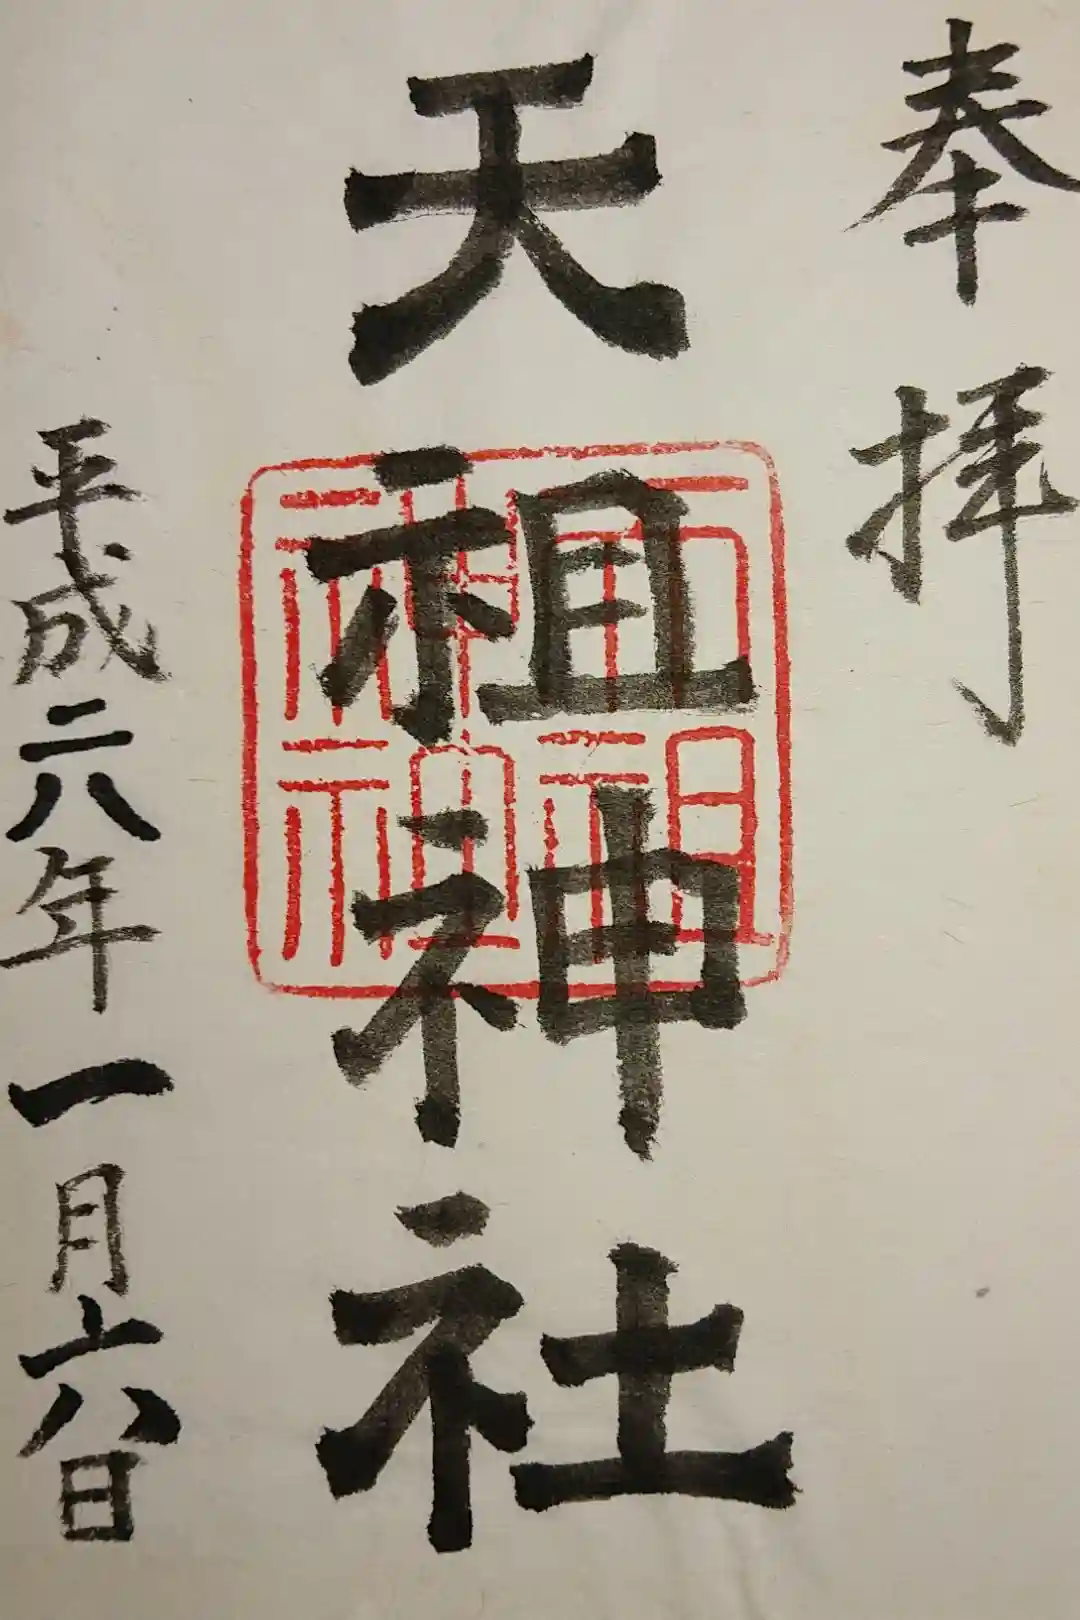 奉拝
天祖神社
天祖神社
平成二八年一月六日